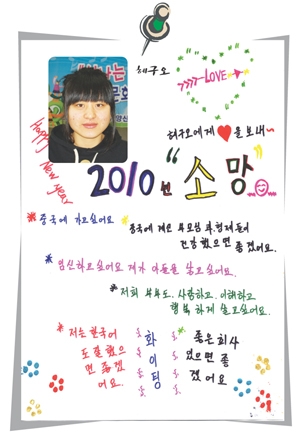 허구오
LOVE
허구오에게 ♥을 보내~
HAPPY New Year
2010년 "소망"
* 중국에 가고싶어요
* 중국에 계신 부모님과, 형제들이
건강했으면 좋겠어요.
* 임신하고싶어요 제가 아들을 낳고싶어요.
* 저희 부부도, 사랑하고, 이해하고
행복하게 살고싶어요.
* 저는 한국어
도 잘했으
면 좋겠
어요.
화이팅
* 좋은 회사
있으면 좋
겠어요